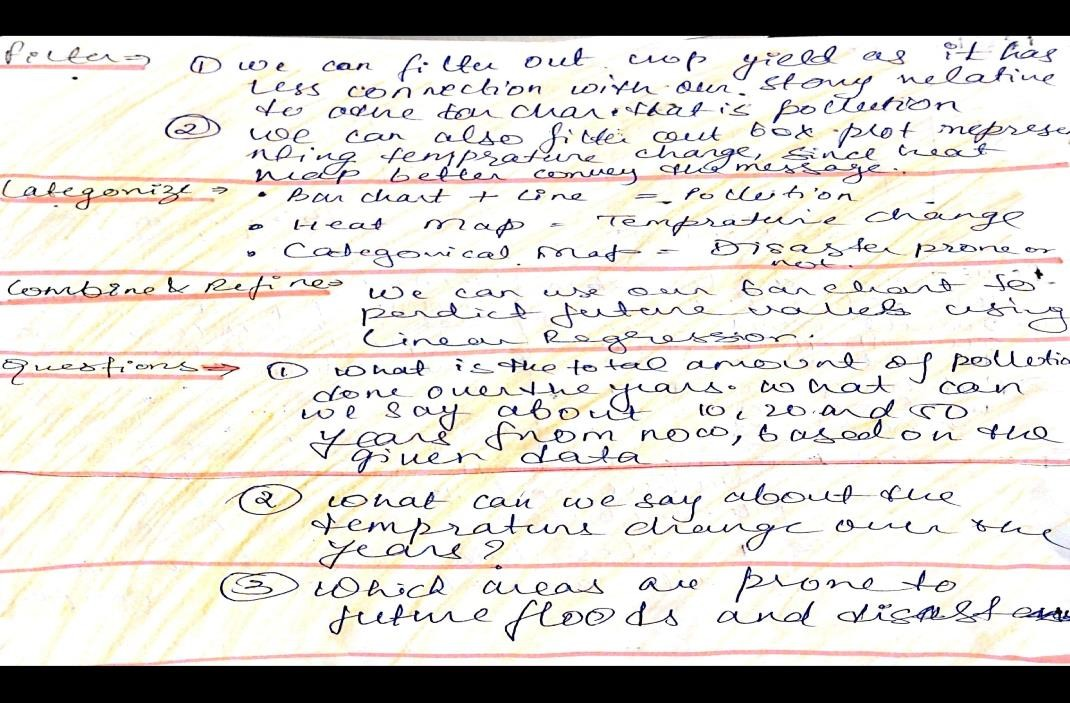 Filter ⇒ ① we can filter out crop yield as it has
less connection with our story relative
to
that is pollution
② we can also filter out box plot represe
nting temprature change, since heat
map better convey the message.
Categorize ⇒ • Bar chart + Line = Pollution
• Heat map = Temprature change
• Categorical map = Disaster prone or
not.
Combine & Refine ⇒ We can use our barchart to
perdict future values using
Linear Regression.
Questions ⇒ ① What is the total amount of pollutio
done over the years. What can
we say about 10, 20 and 50
years from now, based on the
given data
② What can we say about the
temprature change over the
years?
③ Which areas are prone to
future floods and disaster